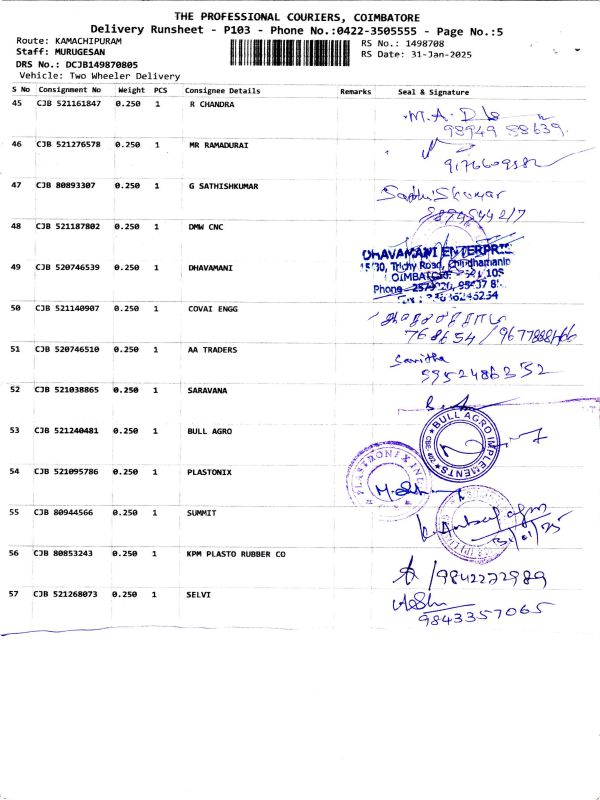 THE PROFESSIONAL COURIERS, COIMBATORE
Delivery Runsheet - P103 - Phone No.:0422-3505555 - Page No.:5
Route: KAMACHIPURAM
RS No.: 1498708
Staff: MURUGESAN
RS Date: 31-Jan-2025
DRS No.: DCJB149870805
Vehicle: Two Wheeler Delivery
S No Consignment No Weight PCS Consignee Details Remarks Seal & Signature
45 CJB 521161847 0.250 1 R CHANDRA
M.A.D
98949 58639
46 CJB 521276578 0.250 1 MR RAMADURAI
9176609382
47 CJB 80893307 0.250 1 G SATHISHKUMAR
Sathiskumar
48 CJB 521187802 0.250 1 DMW CNC
49 CJB 520746539 0.250 1 DHAVAMANI
DHAVAMANI ENTERPRI
15/30, Trichy Road, Chindhamani
OIMBATORE
Phone
50 CJB 521140907 0.250 1 COVAI ENGG
768654 / 9677888466
51 CJB 520746510 0.250 1 AA TRADERS
Savitha
9952486352
52 CJB 521038865 0.250 1 SARAVANA
53 CJB 521240481 0.250 1 BULL AGRO
BULL AGRO IMPLEMENTS
54 CJB 521095786 0.250 1 PLASTONIX
PLASTRONIX INC
55 CJB 80944566 0.250 1 SUMMIT
31/01/25
56 CJB 80853243 0.250 1 KPM PLASTO RUBBER CO
/9842272989
57 CJB 521268073 0.250 1 SELVI
9843357065